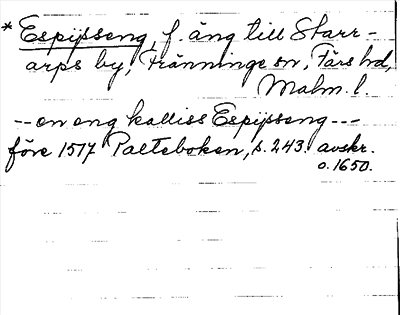 * Espipseng, f. äng till Starr-
arps by, Tränninge sn, Färs hd,
Malm. l.
-- en eng kalliss Espipseng ---
före 1517 Palteboken, s. 243. avskr.
o. 1650.